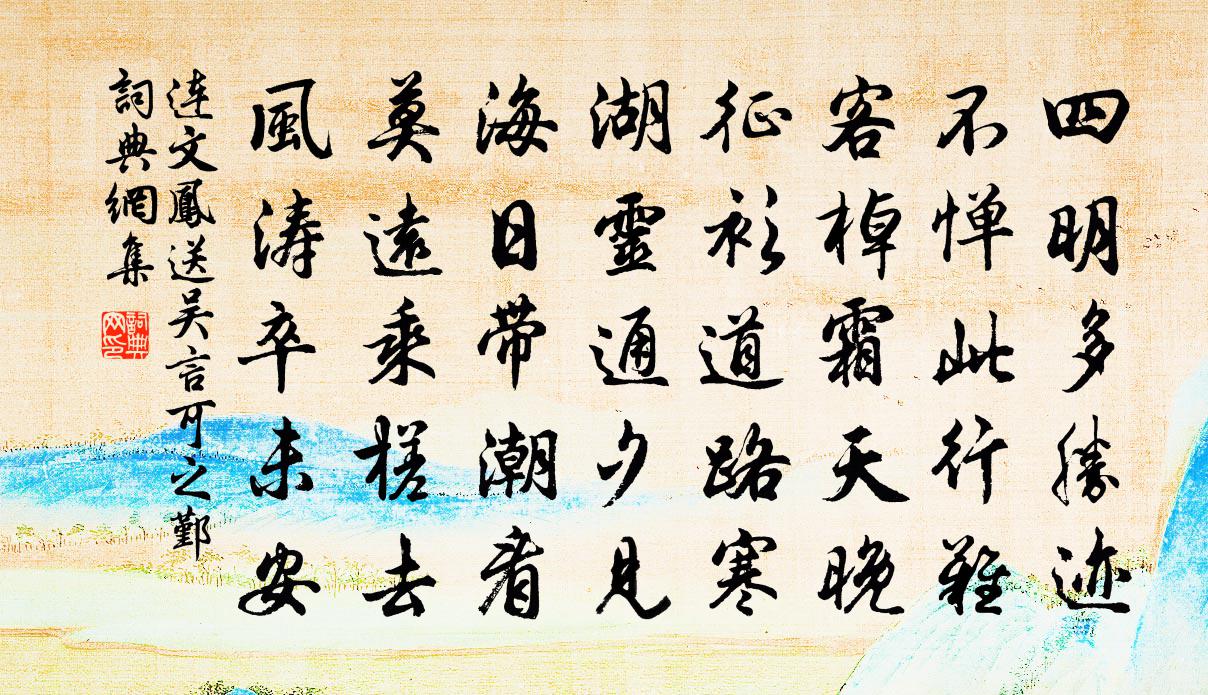 四明多勝迹
不惮此行難
客棹霜天晚
征衫道路寒
湖靈通夕見
海日帶潮看
莫遠乘槎去
風濤卒未安
连文鳳送吴言可之鄞
詞典網集
詞典網印